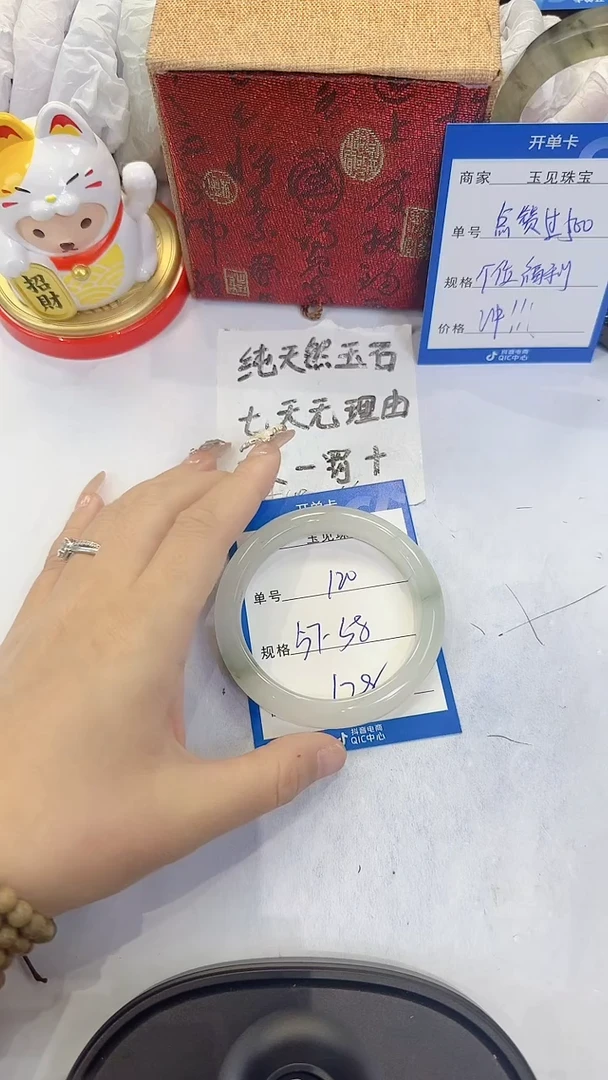 开单卡
商家 玉见珠宝
单号 点赞过500
规格 个位福利
价格 冲!!!
抖音电商
QIC中心
招財
纯天然玉石
七天无理由
一罚十
开单卡
玉见珠
单号 120
规格 57-58
178
抖音电商
QIC中心